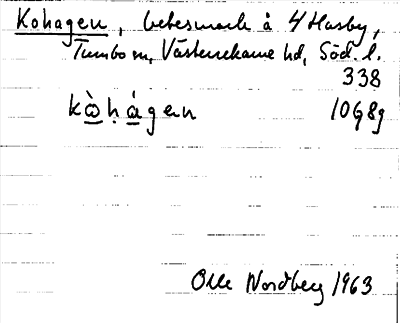 Kohagen, betesmark å 4 Hasby,
Tumbo sn, Västerrekarne hd, Söd. l.
338
kò̲ḥá̲gen 10G8g
Olle Nordberg 1963